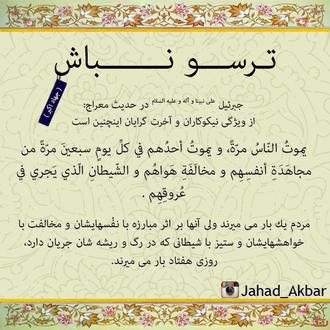 ترسو نباش
( جهاد اکبر )
جبرئیل علی نبینا و آله و علیه السلام در حدیث معراج:
از ویژگی نیکوکاران و آخرت گرایان اینچنین است
يموتُ النّاسُ مرّةً، و يموتُ أحدُهم في كلِّ يومٍ سبعينَ مرّةً من
مجاهَدَةِ أنفسِهِم و مخالَفَةِ هَواهُم و الشَّيطانِ الّذي يَجري في
عُروقِهِم .
مردم یك بار می میرند ولی آنها بر اثر مبارزه با نفْسهایشان و مخالفت با
خواهشهایشان و ستیز با شیطانی که در رگ و ریشه شان جریان دارد،
روزی هفتاد بار می میرند.
Jahad_Akbar